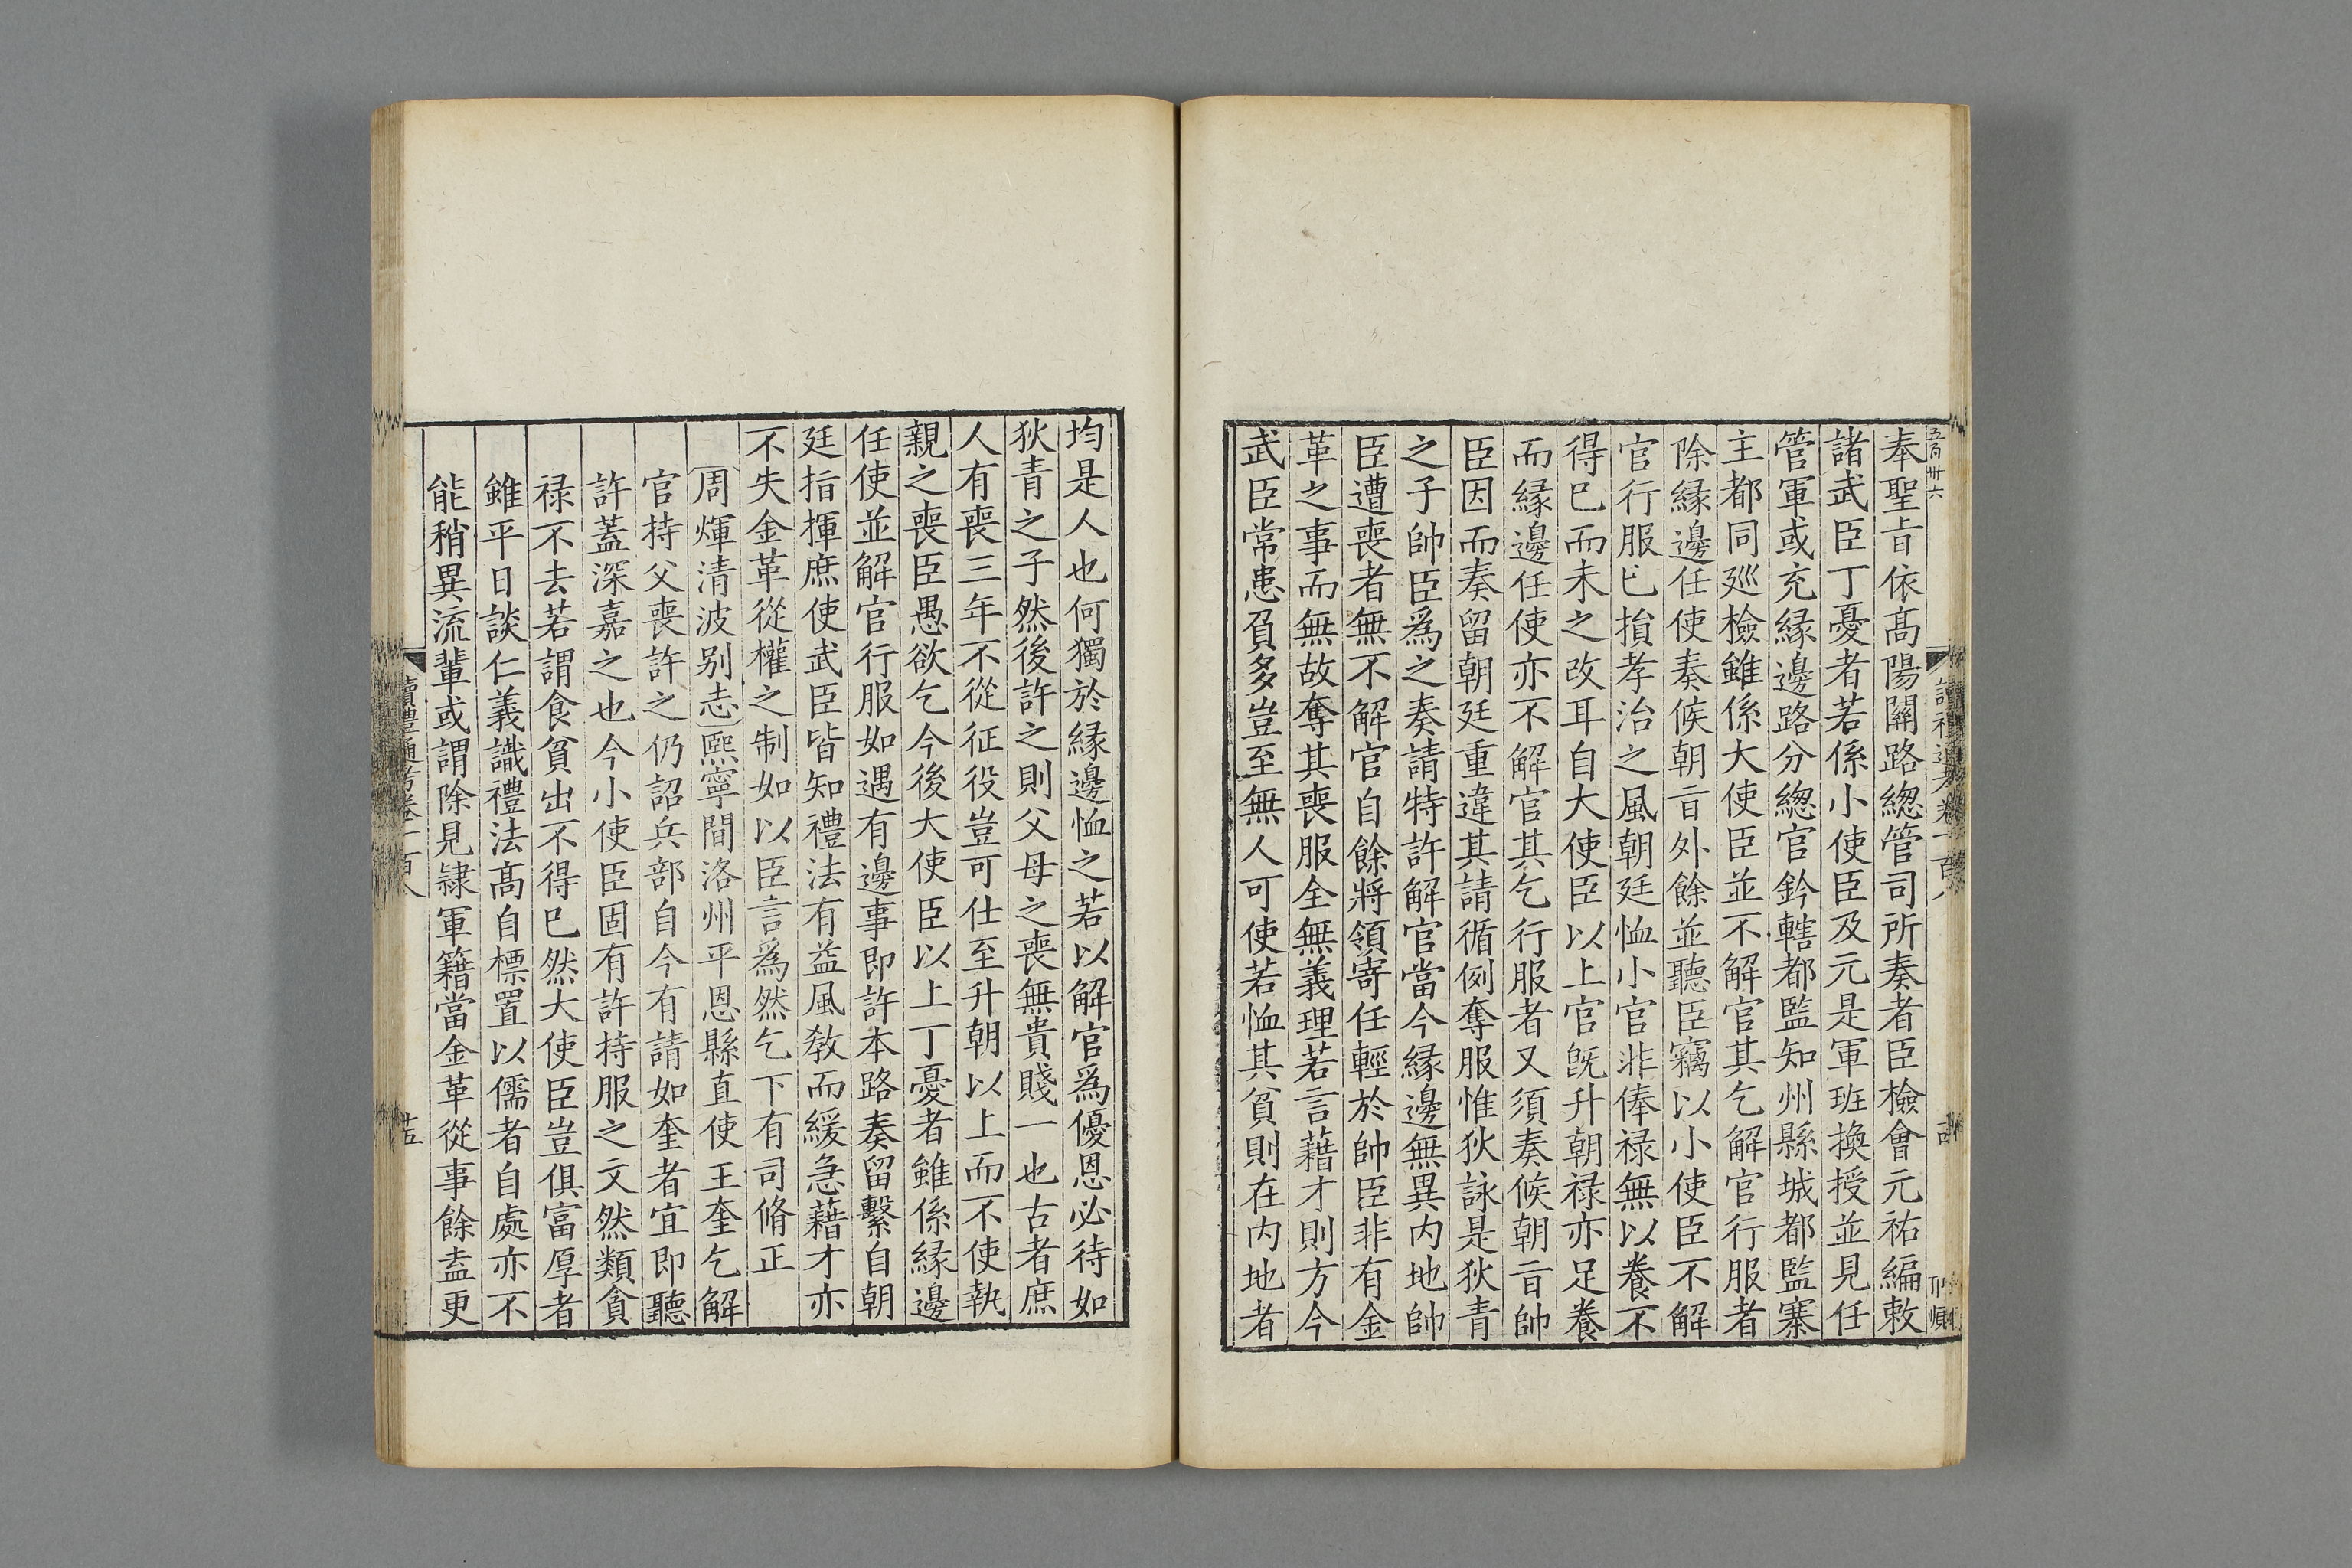 奉聖旨依髙陽關路緫管司所奏者臣檢會元祐編敕
諸武臣丁憂者若係小使臣及元是軍班換授並見任
管軍或充縁邊路分緫官鈐轄都監知州縣城都監寨
主都同廵檢雖係大使臣並不解官其乞解官行服者
除縁邊任使奏候朝旨外餘並聽臣竊以小使臣不解
官行服已損孝治之風朝廷恤小官非俸禄無以養不
得已而未之改耳自大使臣以上官既升朝禄亦足養
而縁邊任使亦不解官其乞行服者又須奏候朝旨帥
臣因而奏留朝廷重違其請循例奪服惟狄詠是狄青
之子帥臣爲之奏請特許解官當今縁邊無異内地帥
臣遭喪者無不解官自餘將領寄任輕於帥臣非有金
革之事而無故奪其喪服全無義理若言藉才則方今
武臣常患負多豈至無人可使若恤其貧則在内地者
均是人也何獨於縁邊恤之若以解官爲優恩必待如
狄青之子然後許之則父母之喪無貴賤一也古者庶
人有喪三年不從征役豈可仕至升朝以上而不使執
親之喪臣愚欲乞今後大使臣以上丁憂者雖係縁邊
任使並解官行服如遇有邊事即許本路奏留繫自朝
廷指揮庶使武臣皆知禮法有益風敎而緩急藉才亦
不失金革從權之制如以臣言爲然乞下有司脩正
周煇清波别志熙寧間洛州平恩縣直使王奎乞解
官持父喪許之仍詔兵部自今有請如奎者宜即聽
許蓋深嘉之也今小使臣固有許持服之文然類貪
禄不去若謂食貧出不得已然大使臣豈俱富厚者
雖平日談仁義識禮法髙自標置以儒者自處亦不
能稍異流輩或謂除見隷軍籍當金革從事餘盍更
讀禮通考卷一百八